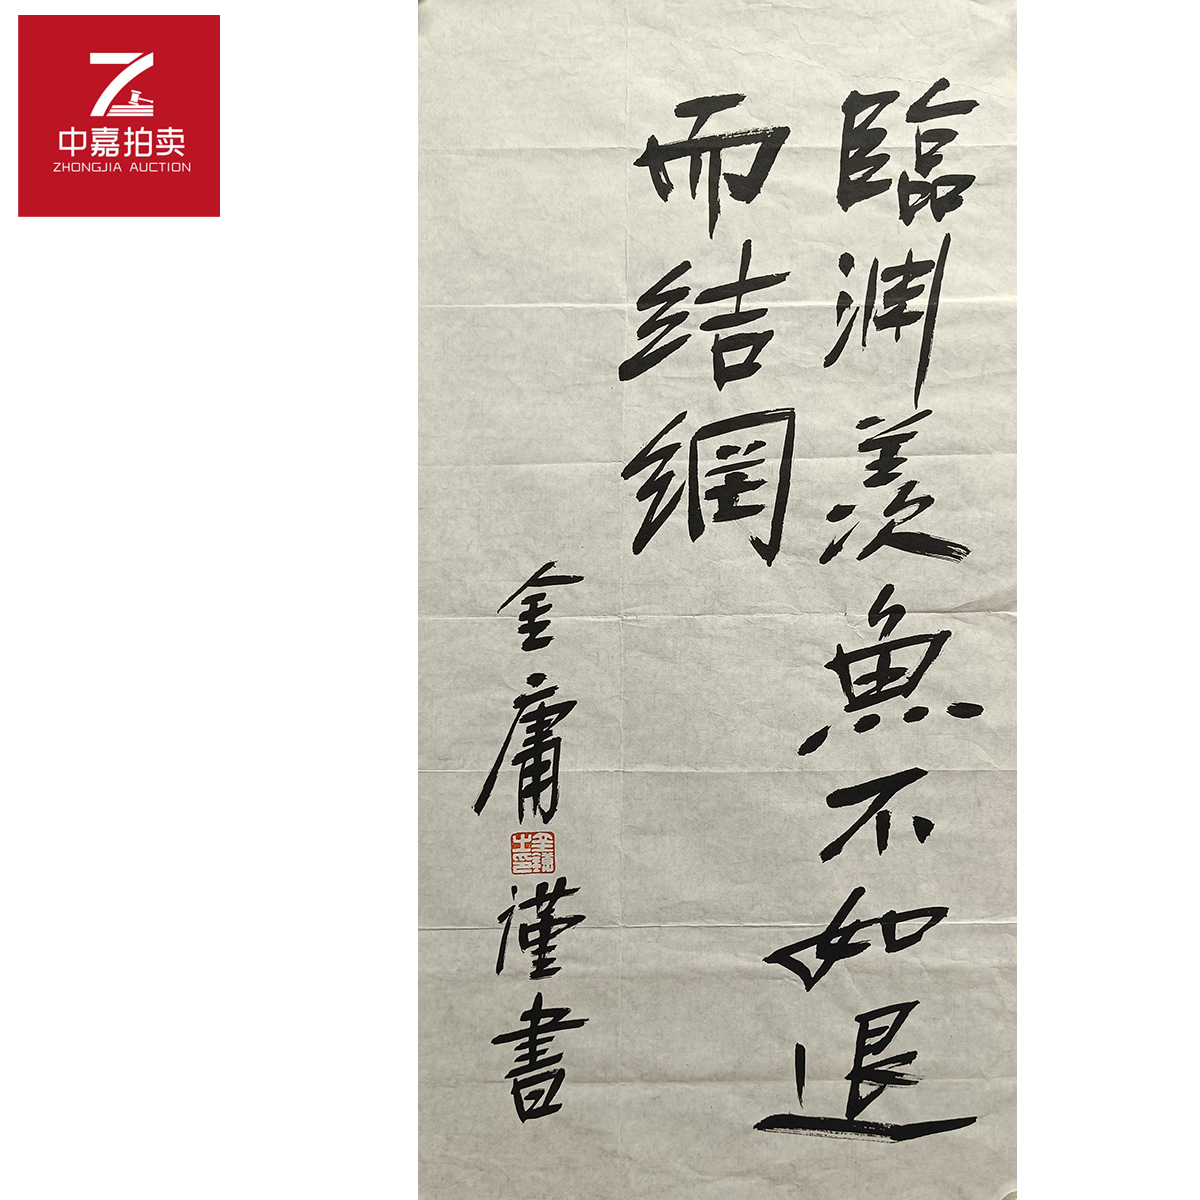 中嘉拍卖
ZHONGJIA AUCTION
臨渊羨魚不如退
而结網
金庸
謹書